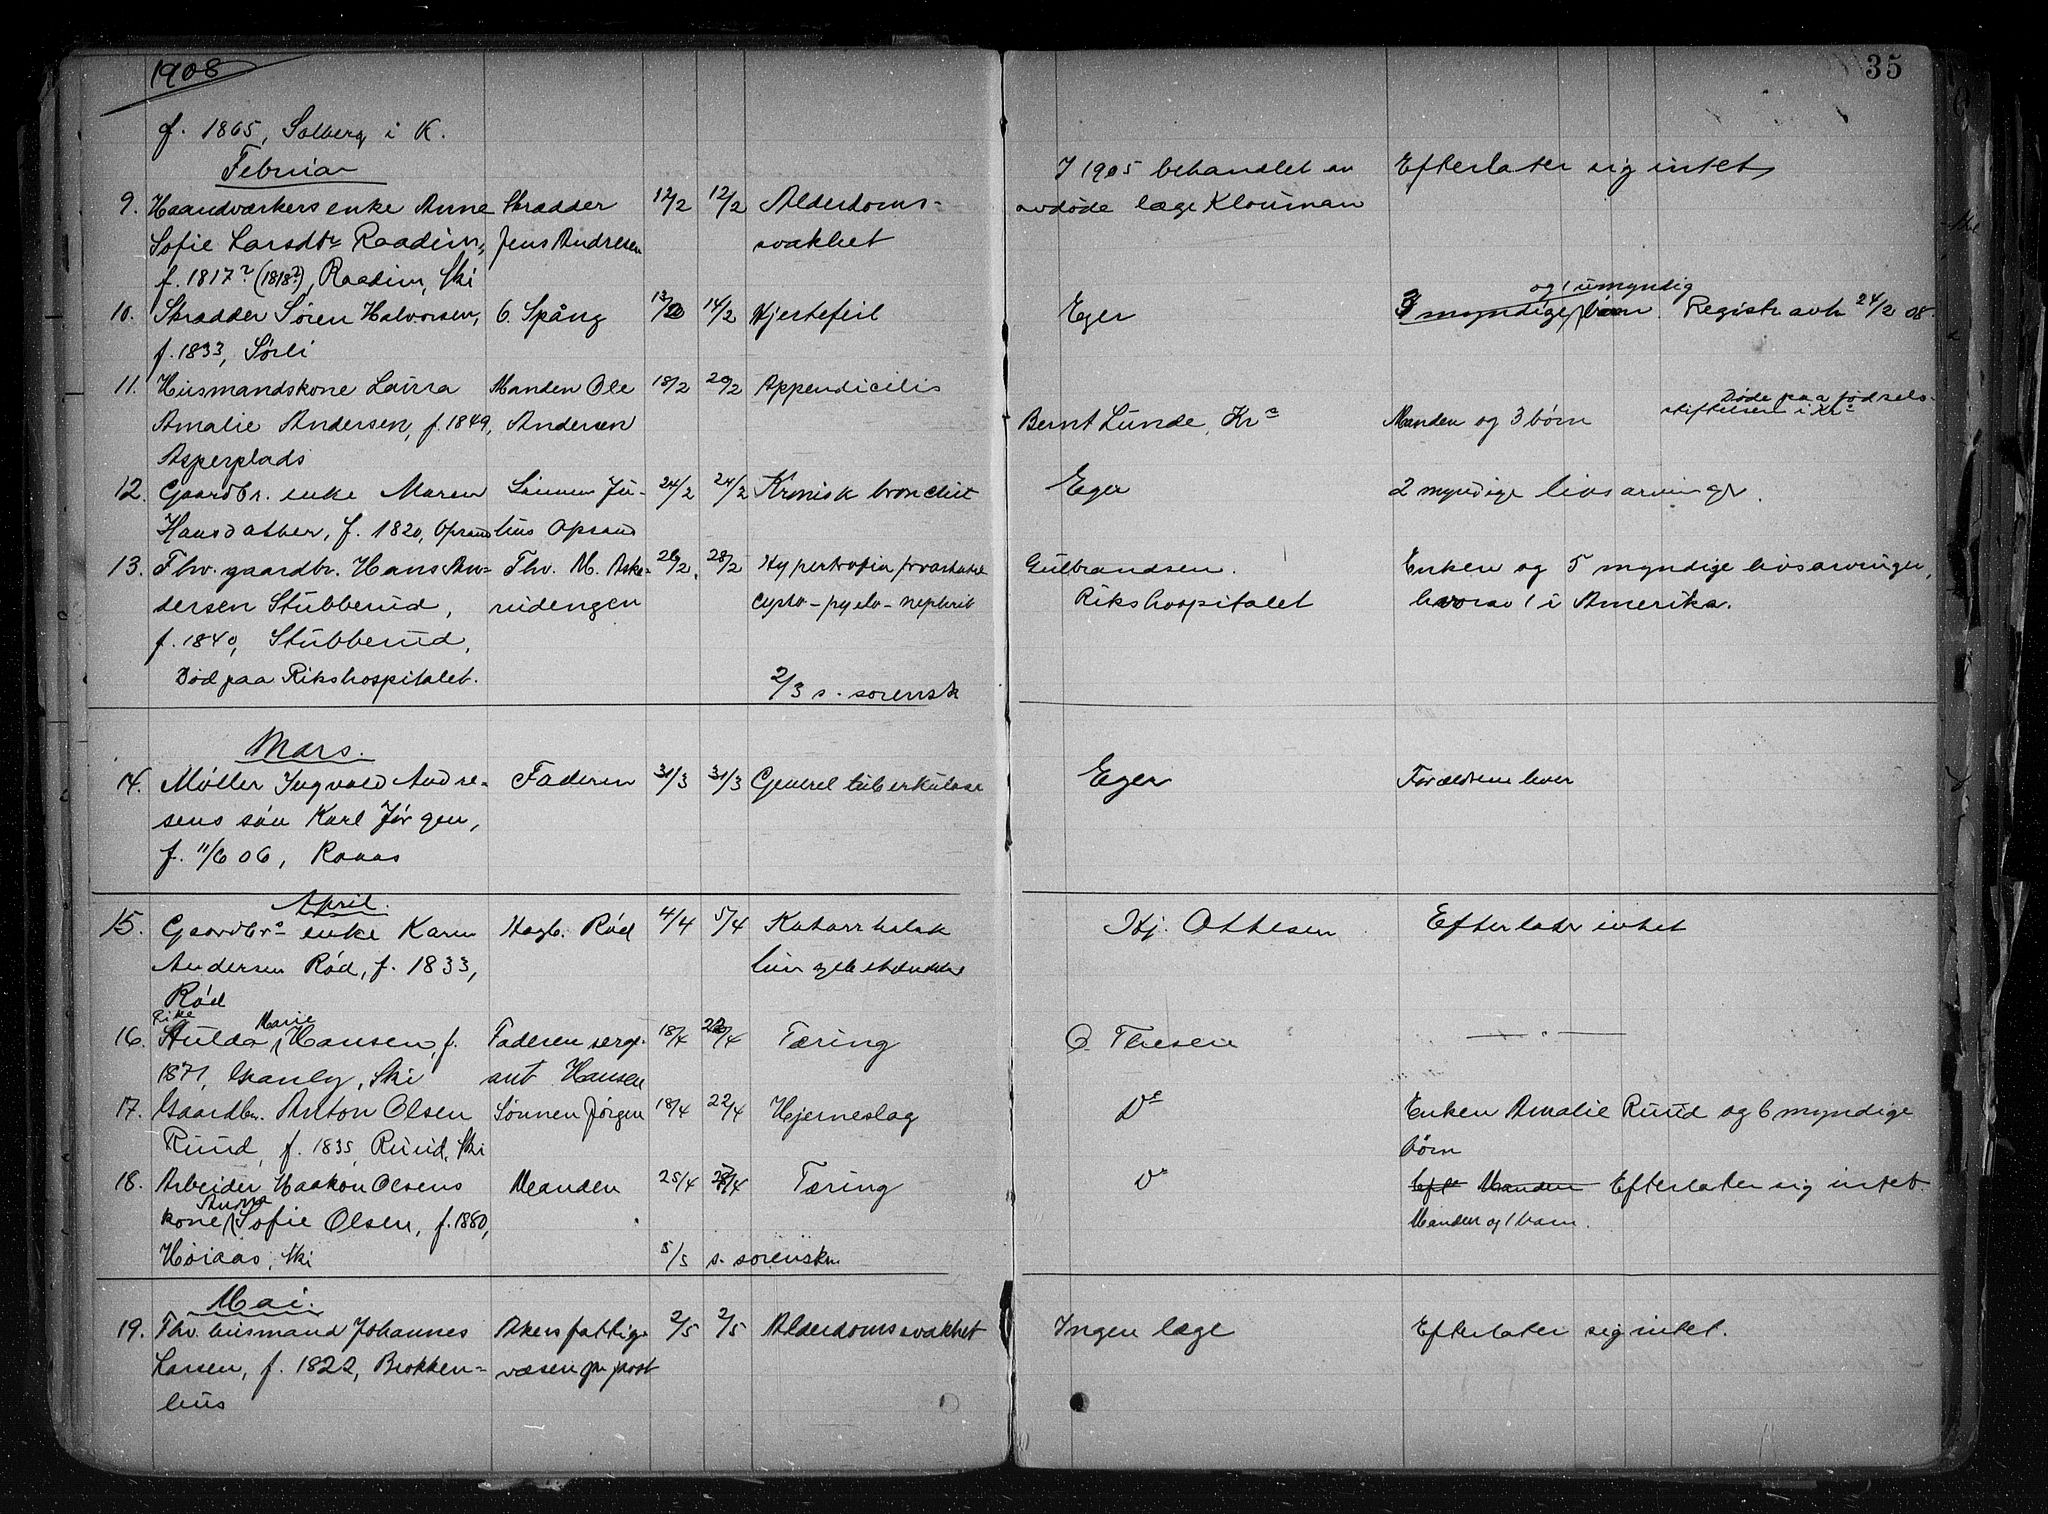 1908
35
f. 1865, Solberg i K.
Februar
9. Haandværkers enke Anne Skrædder 12/2 12/2 Alderdoms- I 1905 behandlet av Efterlater sig intet
Sofie Larsdtr Raadim, Jens Andresen svakhet avdøde læge Klouman
f. 1817? (1818?), Raadim, Ski
og 1 umyndig
10. Skrædder Søren Halvorsen, O. Spång 13/2 14/2 Hjertefeil Eger 3 myndige børn. Registr. avh. 24/2 08.
f. 1833, Sørli
11. Husmandskone Laura Manden Ole 18/2 20/2 Appendicitis Døde paa fødsels-
Amalie Andersen, f. 1849, Andersen Bernt Lunde, Kra Manden og 3 børn stiftelsen i Kra
Asperplads
12. Gaardbr. enke Maren Sønnen Ju- 24/2 24/2 Kronisk bronchit Eger 2 myndige livsarvinger.
Hansdatter, f. 1820, Opsand lius Opsand
13. Fhv. gaardbr. Hans An- Fhv. M. Aske- 26/2 28/2 Hypertrofia prostatae Gulbrandsen. Enken og 5 myndige livsarvinger,
dersen Stubberud, rudengen cysto-pyelo-nephrit Rikshospitalet hvorav 1 i Amerika.
f. 1840, Stubberud,
Død paa Rikshospitalet. 2/3 s. sorensk
Mars.
14. Møller Ingvald Andre- Faderen 31/3 31/3 Generel tuberkulose Eger Forældrene lever
sens søn Karl Jørgen,
f. 11/6 06, Raaas
April.
15. Gaardbrs enke Karen Hagb. Rød 4/4 5/4 Katarrhalsk Hj. Ottesen Efterlater intet
Andersen Rød, f. 1833, lungebetændelse
Rød
Pike Marie
16. Hulda Hansen, f. Faderen serge- 18/4 22/4 Tæring O. Thesen — " —
1871, Granly, Ski ant Hansen
17. Gaardbr. Anton Olsen Sønnen Jørgen 18/4 22/4 Hjerneslag Do Enken Amalie Ruud og 6 myndige
Ruud, f. 1835, Ruud, Ski børn
18. Arbeider Haakon Olsens Manden 25/4 28/4 Tæring Do Eft Manden Efterlater sig intet.
Anna
kone Sofie Olsen, f. 1880, Manden og 1 barn.
Høiaas, Ski 5/5 s. sorenskr.
Mai.
19. Fhv. husmand Johannes Akers fattig- 2/5 2/5 Alderdomssvakhet Ingen læge Efterlater sig intet.
Larsen, f. 1822, Brokken- væsen pr post
hus